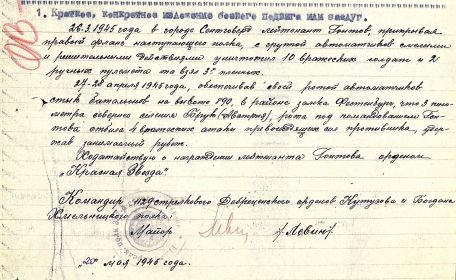 1. Краткое, конкретное изложение боевого подвига или заслуг.
26.3.1945 года в городе лейтенант Гонтов, прикрывая
правый фланг наступающего полка, с группой автоматчиков смелыми
и решительными действиями уничтожил 10 вражеских солдат и 2
ручных пулемета и взял 35 пленных.
27-28 апреля 1945 года, обеспечивая своей ротой автоматчиков
стык батальонов на высоте 190, в районе замка что 3 кило-
метра севернее селения Брук (Австрия), рота под командованием Гон-
това отбила 4 вражеских атаки превосходящих сил противника, удер-
жав занимаемый рубеж.
Ходатайствую о награждении лейтенанта Гонтова орденом
„Красная Звезда“.
Командир Дебреценского орденов Кутузова и Богдана
Хмельницкого полка:
Майор /Левин/
„20“ мая 1945 года.